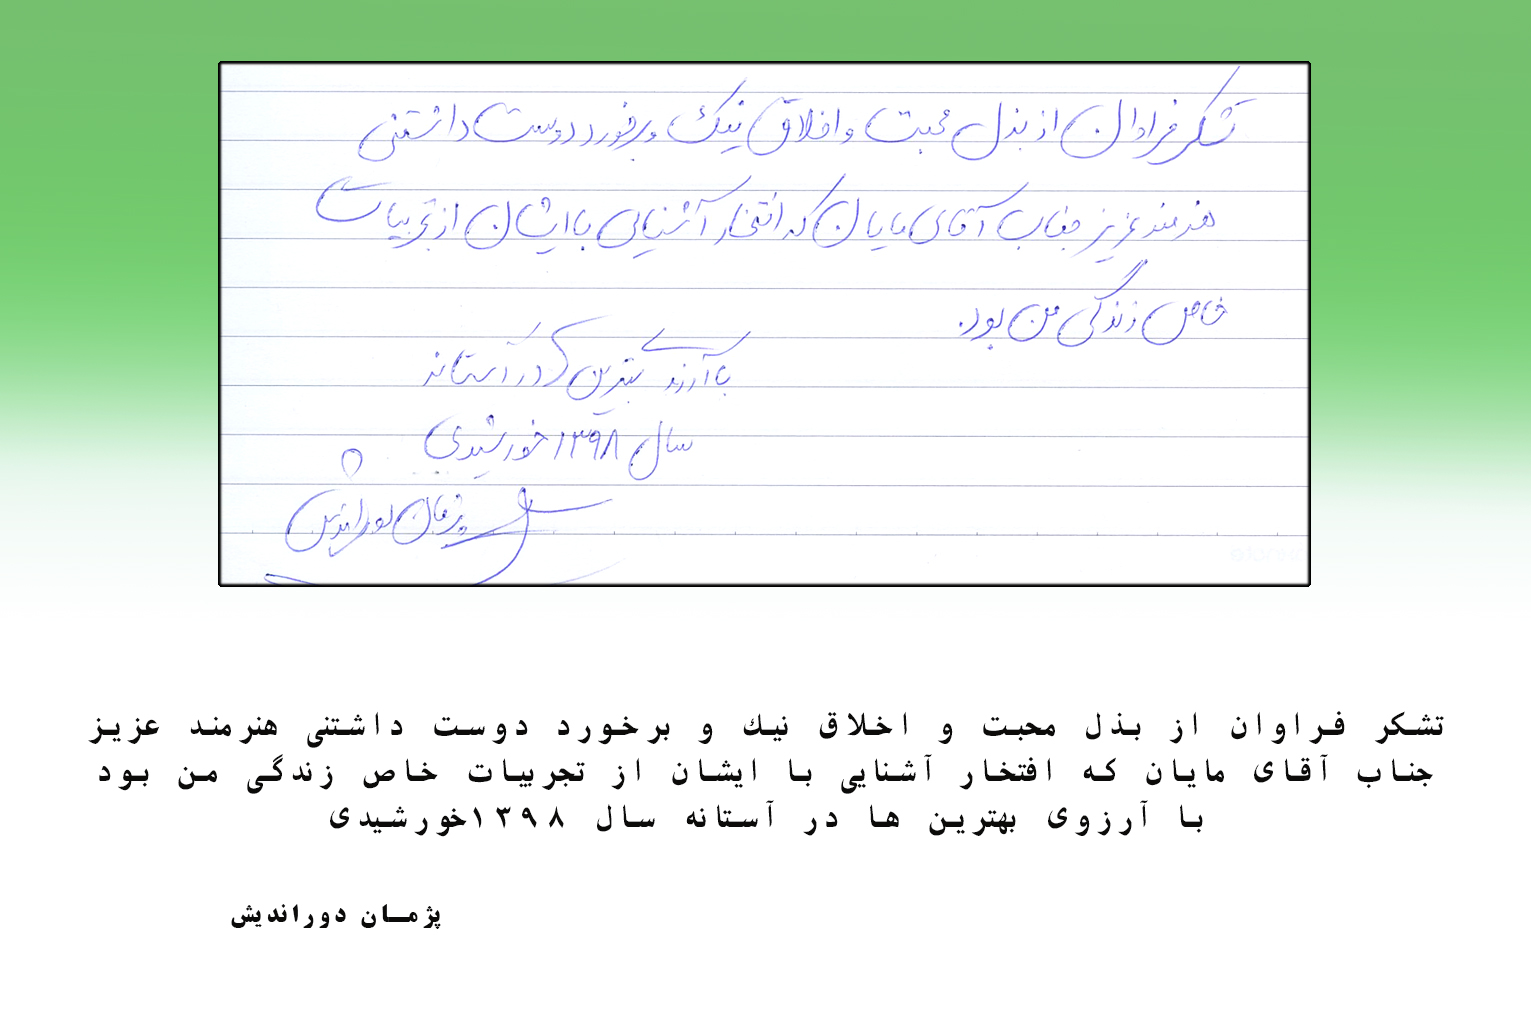 تشکر فراوان از بذل محبت و اخلاق نیک و برخورد دوست داشتنی
هنرمند عزیز جناب آقای مایان که افتخار آشنایی با ایشان از تجربیات
خاص زندگی من بود.
با آرزوی بهترین ها در آستانه
سال ۱۳۹۸ خورشیدی
پژمان دوراندیش
تشکر فراوان از بذل محبت و اخلاق نیك و برخورد دوست داشتنی هنرمند عزیز
جناب آقای مایان که افتخار آشنایی با ایشان از تجربیات خاص زندگی من بود
با آرزوی بهترین ها در آستانه سال ۱۳۹۸خورشیدی
پژمان دوراندیش